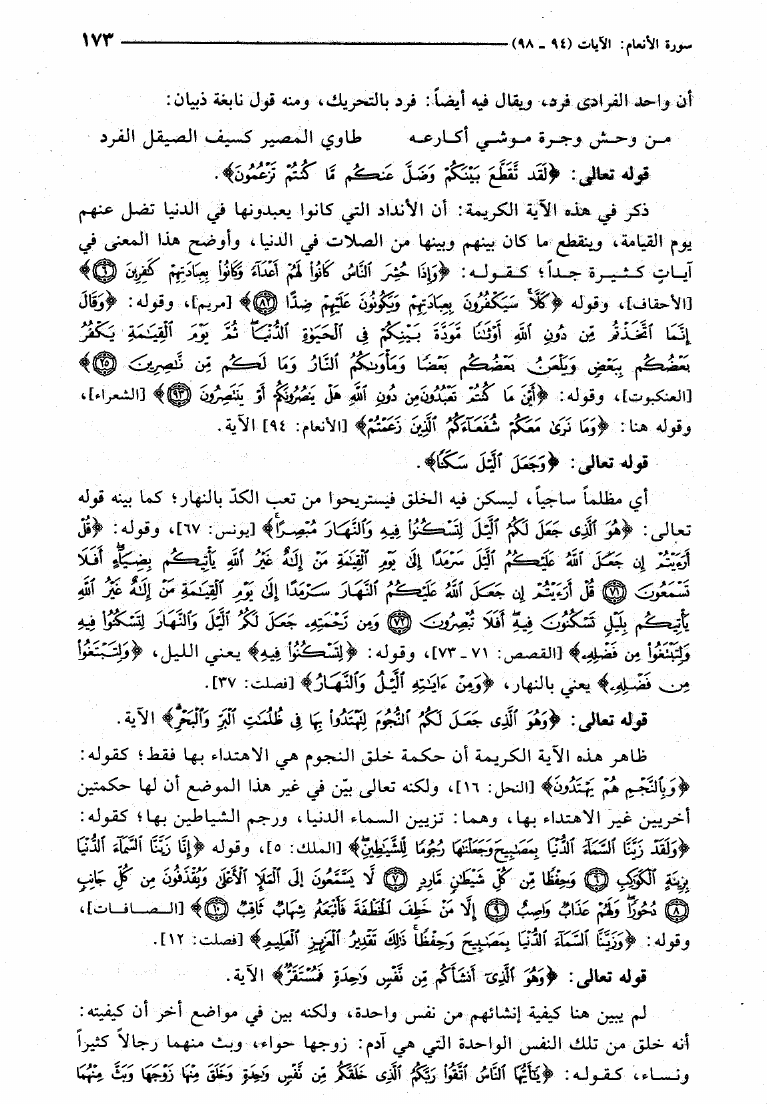 سورة الأنعام: الآيات (٩٤ ـ ٩٨) ١٧٣
أن واحد الفرادى فرد، ويقال فيه أيضاً: فرد بالتحريك، ومنه قول نابغة ذبيان:
مـن وحـش وجـرة مـوشـي أكـارعـه طاوي المصير كسيف الصيقل الفرد
قوله تعالى: ﴿لَقَد تَّقَطَّعَ بَيْنَكُمْ وَضَلَّ عَنكُم مَّا كُنتُمْ تَزْعُمُونَ﴾.
ذكر في هذه الآية الكريمة: أن الأنداد التي كانوا يعبدونها في الدنيا تضل عنهم
يوم القيامة، وينقطع ما كان بينهم وبينها من الصلات في الدنيا، وأوضح هذا المعنى في
آيـاتٍ كـثـيـرة جـداً؛ كـقـولـه: ﴿وَإِذَا حُشِرَ ٱلنَّاسُ كَانُوا۟ لَهُمْ أَعْدَآءً وَكَانُوا۟ بِعِبَادَتِهِمْ كَٰفِرِينَ ۝٦﴾
[الأحقاف]، وقوله ﴿كَلَّا ۚ سَيَكْفُرُونَ بِعِبَادَتِهِمْ وَيَكُونُونَ عَلَيْهِمْ ضِدًّا ۝٨٢﴾ [مريم]، وقوله: ﴿وَقَالَ
إِنَّمَا ٱتَّخَذْتُم مِّن دُونِ ٱللَّهِ أَوْثَٰنًا مَّوَدَّةَ بَيْنِكُمْ فِى ٱلْحَيَوٰةِ ٱلدُّنْيَا ۖ ثُمَّ يَوْمَ ٱلْقِيَٰمَةِ يَكْفُرُ
بَعْضُكُم بِبَعْضٍ وَيَلْعَنُ بَعْضُكُم بَعْضًا وَمَأْوَىٰكُمُ ٱلنَّارُ وَمَا لَكُم مِّن نَّٰصِرِينَ ۝٢٥﴾
[العنكبوت]، وقوله: ﴿أَيْنَ مَا كُنتُمْ تَعْبُدُونَ مِن دُونِ ٱللَّهِ هَلْ يَنصُرُونَكُمْ أَوْ يَنتَصِرُونَ ۝٩٣﴾ [الشعراء]،
وقوله هنا: ﴿وَمَا نَرَىٰ مَعَكُمْ شُفَعَآءَكُمُ ٱلَّذِينَ زَعَمْتُمْ﴾ [الأنعام: ٩٤] الآية.
قوله تعالى: ﴿وَجَعَلَ ٱلَّيْلَ سَكَنًا﴾.
أي مظلماً ساجياً، ليسكن فيه الخلق فيستريحوا من تعب الكدّ بالنهار؛ كما بينه قوله
تعالى: ﴿هُوَ ٱلَّذِى جَعَلَ لَكُمُ ٱلَّيْلَ لِتَسْكُنُوا۟ فِيهِ وَٱلنَّهَارَ مُبْصِرًا ۚ﴾ [يونس: ٦٧]، وقوله: ﴿قُلْ
أَرَءَيْتُمْ إِن جَعَلَ ٱللَّهُ عَلَيْكُمُ ٱلَّيْلَ سَرْمَدًا إِلَىٰ يَوْمِ ٱلْقِيَٰمَةِ مَنْ إِلَٰهٌ غَيْرُ ٱللَّهِ يَأْتِيكُم بِضِيَآءٍ ۖ أَفَلَا
تَسْمَعُونَ ۝٧١ قُلْ أَرَءَيْتُمْ إِن جَعَلَ ٱللَّهُ عَلَيْكُمُ ٱلنَّهَارَ سَرْمَدًا إِلَىٰ يَوْمِ ٱلْقِيَٰمَةِ مَنْ إِلَٰهٌ غَيْرُ ٱللَّهِ
يَأْتِيكُم بِلَيْلٍ تَسْكُنُونَ فِيهِ ۖ أَفَلَا تُبْصِرُونَ ۝٧٢ وَمِن رَّحْمَتِهِۦ جَعَلَ لَكُمُ ٱلَّيْلَ وَٱلنَّهَارَ لِتَسْكُنُوا۟ فِيهِ
وَلِتَبْتَغُوا۟ مِن فَضْلِهِۦ﴾ [القصص: ٧١ ـ ٧٣]، وقوله: ﴿لِتَسْكُنُوا۟ فِيهِ﴾ يعني الليل، ﴿وَلِتَبْتَغُوا۟
مِن فَضْلِهِۦ﴾ يعني بالنهار، ﴿وَمِنْ ءَايَٰتِهِ ٱلَّيْلُ وَٱلنَّهَارُ﴾ [فصلت: ٣٧].
قوله تعالى: ﴿وَهُوَ ٱلَّذِى جَعَلَ لَكُمُ ٱلنُّجُومَ لِتَهْتَدُوا۟ بِهَا فِى ظُلُمَٰتِ ٱلْبَرِّ وَٱلْبَحْرِ ۗ﴾ الآية.
ظاهر هذه الآية الكريمة أن حكمة خلق النجوم هي الاهتداء بها فقط؛ كقوله:
﴿وَبِٱلنَّجْمِ هُمْ يَهْتَدُونَ﴾ [النحل: ١٦]، ولكنه تعالى بيّن في غير هذا الموضع أن لها حكمتين
أخريين غير الاهتداء بها، وهما: تزيين السماء الدنيا، ورجم الشياطين بها؛ كقوله:
﴿وَلَقَدْ زَيَّنَّا ٱلسَّمَآءَ ٱلدُّنْيَا بِمَصَٰبِيحَ وَجَعَلْنَٰهَا رُجُومًا لِّلشَّيَٰطِينِ ۖ﴾ [الملك: ٥]، وقوله ﴿إِنَّا زَيَّنَّا ٱلسَّمَآءَ ٱلدُّنْيَا
بِزِينَةٍ ٱلْكَوَاكِبِ ۝٦ وَحِفْظًا مِّن كُلِّ شَيْطَٰنٍ مَّارِدٍ ۝٧ لَّا يَسَّمَّعُونَ إِلَى ٱلْمَلَإِ ٱلْأَعْلَىٰ وَيُقْذَفُونَ مِن كُلِّ جَانِبٍ
۝٨ دُحُورًا ۖ وَلَهُمْ عَذَابٌ وَاصِبٌ ۝٩ إِلَّا مَنْ خَطِفَ ٱلْخَطْفَةَ فَأَتْبَعَهُۥ شِهَابٌ ثَاقِبٌ ۝١٠﴾ [الـصـافـات]،
وقوله: ﴿وَزَيَّنَّا ٱلسَّمَآءَ ٱلدُّنْيَا بِمَصَٰبِيحَ وَحِفْظًا ۚ ذَٰلِكَ تَقْدِيرُ ٱلْعَزِيزِ ٱلْعَلِيمِ﴾ [فصلت: ١٢].
قوله تعالى: ﴿وَهُوَ ٱلَّذِىٓ أَنشَأَكُم مِّن نَّفْسٍ وَٰحِدَةٍ فَمُسْتَقَرٌّ﴾ الآية.
لم يبين هنا كيفية إنشائهم من نفس واحدة، ولكنه بين في مواضع أخر أن كيفيته:
أنه خلق من تلك النفس الواحدة التي هي آدم: زوجها حواء، وبث منهما رجالاً كثيراً
ونساء، كـقـولـه: ﴿يَٰٓأَيُّهَا ٱلنَّاسُ ٱتَّقُوا۟ رَبَّكُمُ ٱلَّذِى خَلَقَكُم مِّن نَّفْسٍ وَٰحِدَةٍ وَخَلَقَ مِنْهَا زَوْجَهَا وَبَثَّ مِنْهُمَا